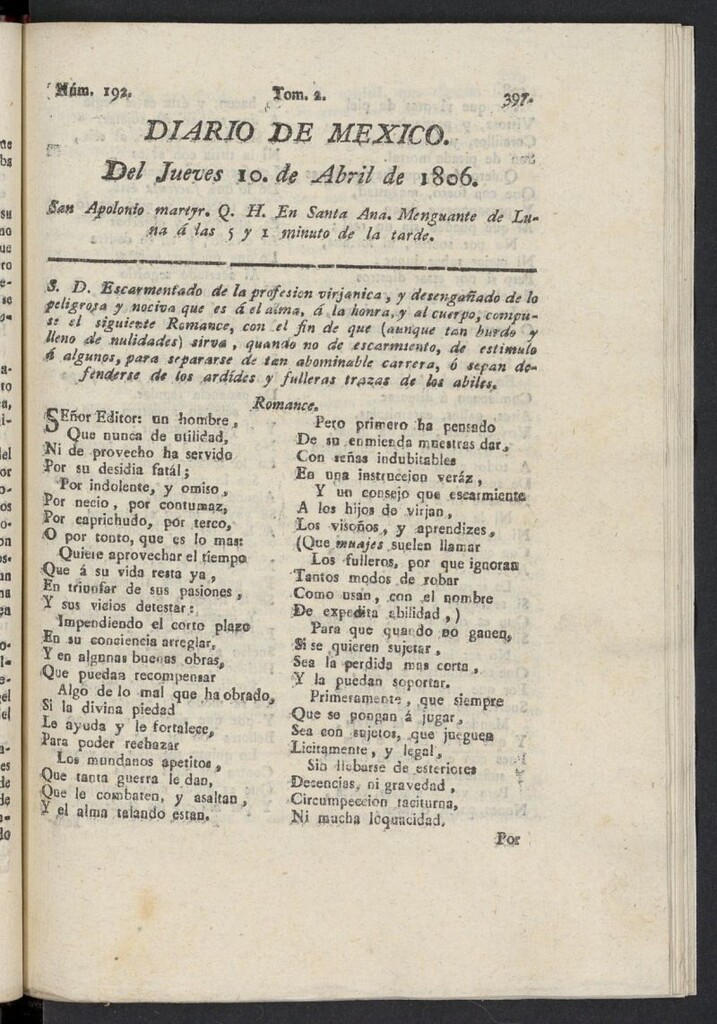 Núm. 192. Tom. 2. 397.
DIARIO DE MEXICO.
Del Jueves 10. de Abril de 1806.
San Apolonio martyr. Q. H. En Santa Ana. Menguante de Lu-
na á las 5 y 1 minuto de la tarde.
S. D. Escarmentado de la profesion virjanica, y desengañado de lo
peligrosa y nociva que es á el alma, á la honra, y al cuerpo, compu-
se el siguiente Romance, con el fin de que (aunque tan burdo y
lleno de nulidades) sirva, quando no de escarmiento, de estimulo
á algunos, para separarse de tan abominable carrera, ó sepan de-
fenderse de los ardídes y fulleras trazas de los abiles.
Romance.
SEñor Editor: un hombre,
Que nunca de utilidad,
Ni de provecho ha servido
Por su desidia fatál;
Por indolente, y omiso,
Por necio, por contumaz,
Por caprichudo, por terco,
O por tonto, que es lo mas:
Quiere aprovechar el tiempo
Que á su vida resta ya,
En triunfar de sus pasiones,
Y sus vicios detestar:
Impendiendo el corto plazo
En su conciencia arreglar,
Y en algunas buenas obras,
Que puedan recompensar
Algo de lo mal que ha obrado,
Si la divina piedad
Le ayuda y le fortalece,
Para poder rechazar
Los mundanos apetitos,
Que tanta guerra le dan,
Que le combaten, y asaltan,
Y el alma talando estan.
Pero primero ha pensado
De su enmienda muestras dar,
Con señas indubitables
En una instruccion veráz,
Y un consejo que escarmiente
A los hijos de virjan,
Los visoños, y aprendizes,
(Que muajes suelen llamar
Los fulleros, por que ignoran
Tantos modos de robar
Como usan, con el nombre
De expedita abilidad,)
Para que quando no ganen,
Si se quieren sujetar,
Sea la perdida mas corta,
Y la puedan soportar.
Primeramente, que siempre
Que se pongan á jugar,
Sea con sujetos, que jueguen
Licitamente, y legal,
Sin llebarse de esteriores
Decencias, ni gravedad,
Circumpeccion taciturna,
Ni mucha loquacidad,
Por